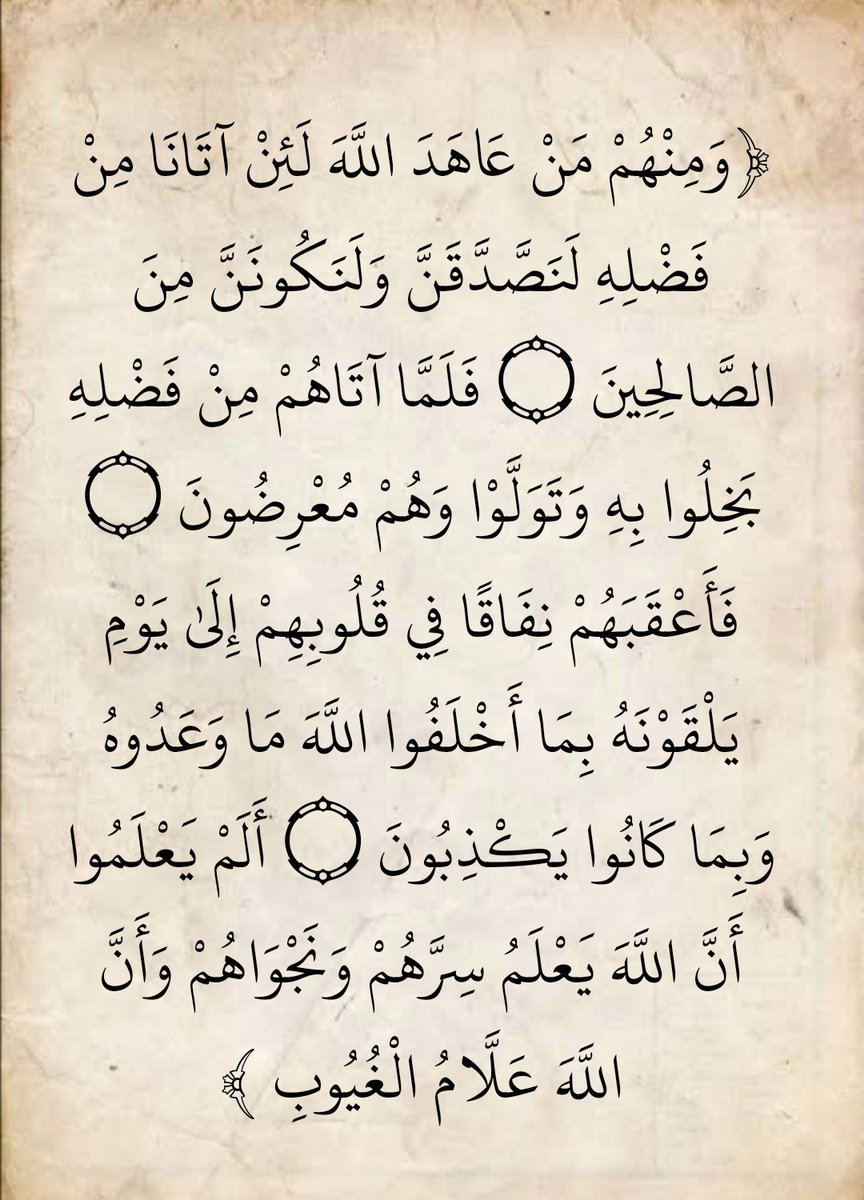 ﴿وَمِنْهُمْ مَنْ عَاهَدَ اللَّهَ لَئِنْ آتَانَا مِنْ
فَضْلِهِ لَنَصَّدَّقَنَّ وَلَنَكُونَنَّ مِنَ
الصَّالِحِينَ ۝ فَلَمَّا آتَاهُمْ مِنْ فَضْلِهِ
بَخِلُوا بِهِ وَتَوَلَّوْا وَهُمْ مُعْرِضُونَ ۝
فَأَعْقَبَهُمْ نِفَاقًا فِي قُلُوبِهِمْ إِلَىٰ يَوْمِ
يَلْقَوْنَهُ بِمَا أَخْلَفُوا اللَّهَ مَا وَعَدُوهُ
وَبِمَا كَانُوا يَكْذِبُونَ ۝ أَلَمْ يَعْلَمُوا
أَنَّ اللَّهَ يَعْلَمُ سِرَّهُمْ وَنَجْوَاهُمْ وَأَنَّ
اللَّهَ عَلَّامُ الْغُيُوبِ ﴾